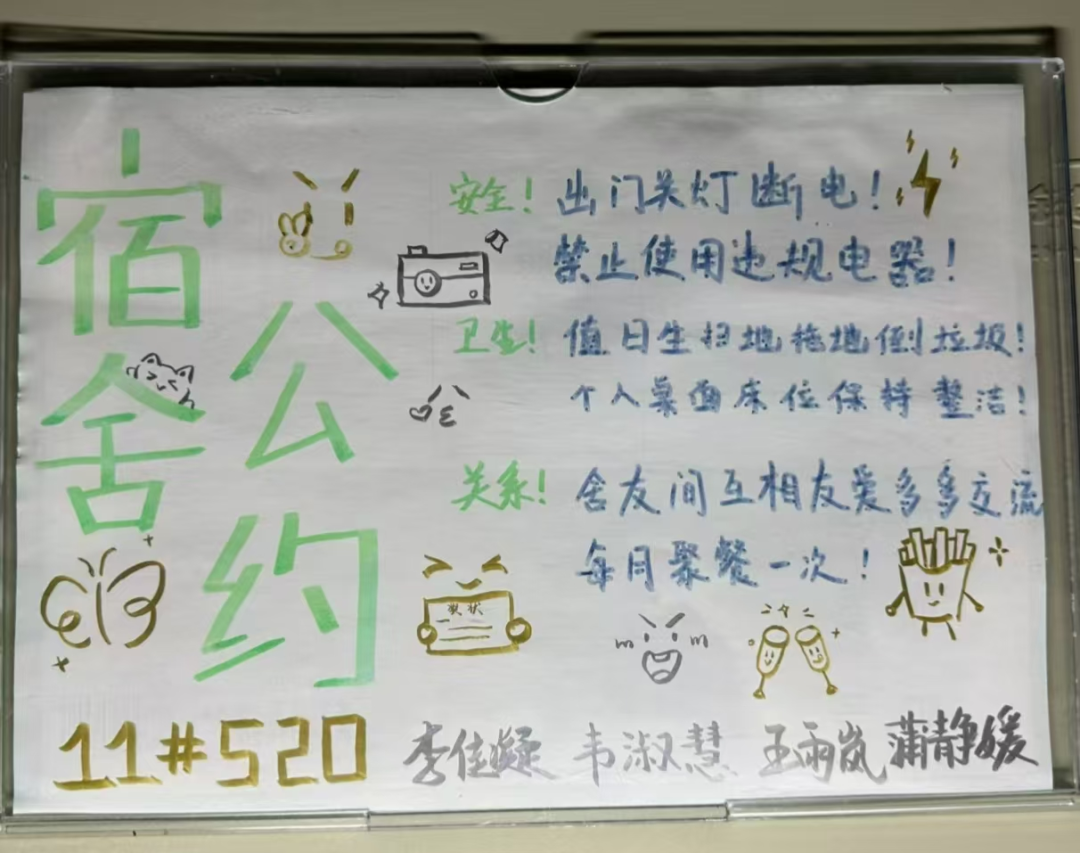 宿舍
公约
安全！出门关灯断电！
禁止使用违规电器！
卫生！值日生扫地拖地倒垃圾！
个人桌面床位保持整洁！
关系！舍友间互相友爱多多交流
每月聚餐一次！
奖状
11#520
李佳凝 韦淑慧 王雨岚 蒲静媛